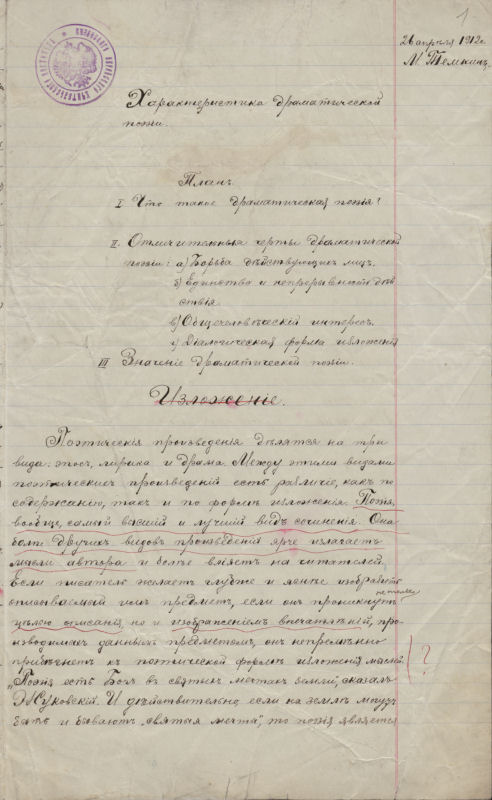 1
26 апрѣля 1912 г.
М. Темкинъ
Характеристика драматической
поэзіи.
Планъ.
I Что такое драматическая поэзія?
II. Отличительныя черты драматической
поэзіи: а) Борьба дѣйствующихъ лицъ.
б) Единство и непрерывный дѣй
ствія.
в) Общечеловѣческій интересъ.
г) Діалогическая форма изложенія
III Значеніе драматической поэзіи.
Изложеніе.
Поэтическія произведенія дѣлятся на три
вида: эпосъ, лирика и драма. Между этими видами
поэтическихъ произведеній есть различіе, какъ по
содержанію, такъ и по формѣ изложенія. Поэзія,
вообще, самый высшій и лучшій видъ сочиненія. Она
болѣе другихъ видовъ произведенія ярче излагаетъ
мысли автора и болѣе вліяетъ на читателей.
Если писатель желаетъ глубже и яснѣе изобразить
описываемый имъ предметъ, если онъ проникнутъ
не только
цѣлою описанія, но и изображеніемъ впечатлѣній, про-
изводимыхъ даннымъ предметомъ, онъ непремѣнно
прибѣгнетъ къ поэтической формѣ изложенія мыслей.
?
„Поэзія есть Богъ въ святыхъ мечтахъ земли", сказалъ
Жуковскій. И дѣйствительно, если на землѣ могутъ
быть и бываютъ „святыя мечты", то поэзія является